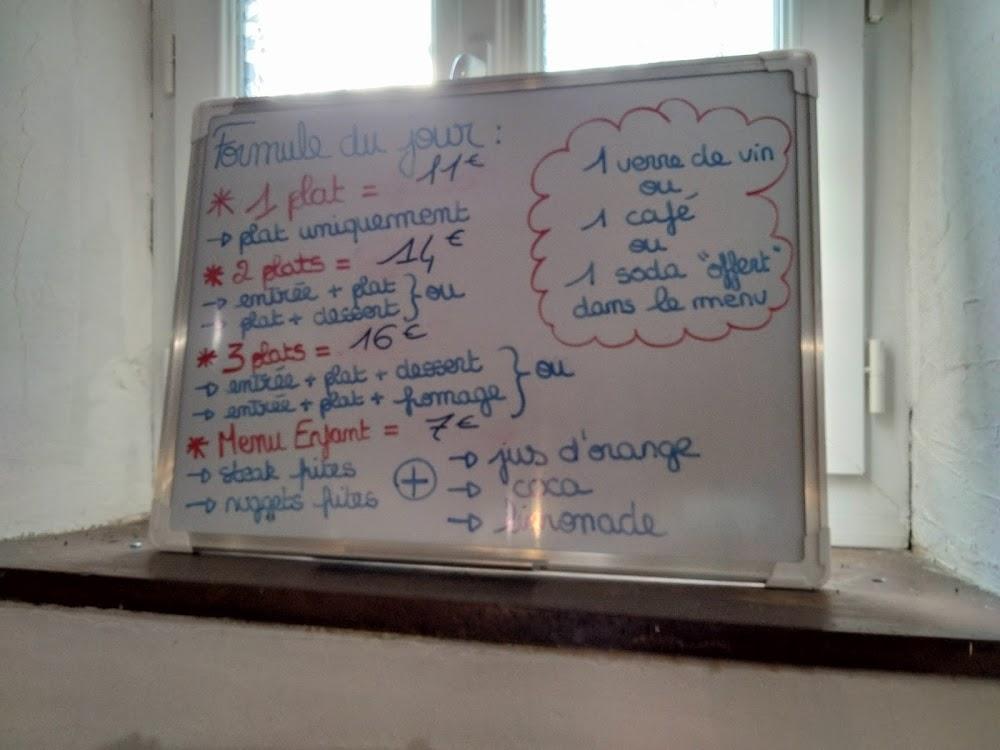 Formule du jour :
* 1 plat = 11€
→ plat uniquement
* 2 plats = 14€
→ entrée + plat
→ plat + dessert } ou
* 3 plats = 16€
→ entrée + plat + dessert
→ entrée + plat + fromage } ou
* Menu Enfant = 7€
→ steak frites
→ nuggets frites
+
→ jus d'orange
→ coca
→ limonade
1 verre de vin
ou
1 café
ou
1 soda "offert"
dans le menu